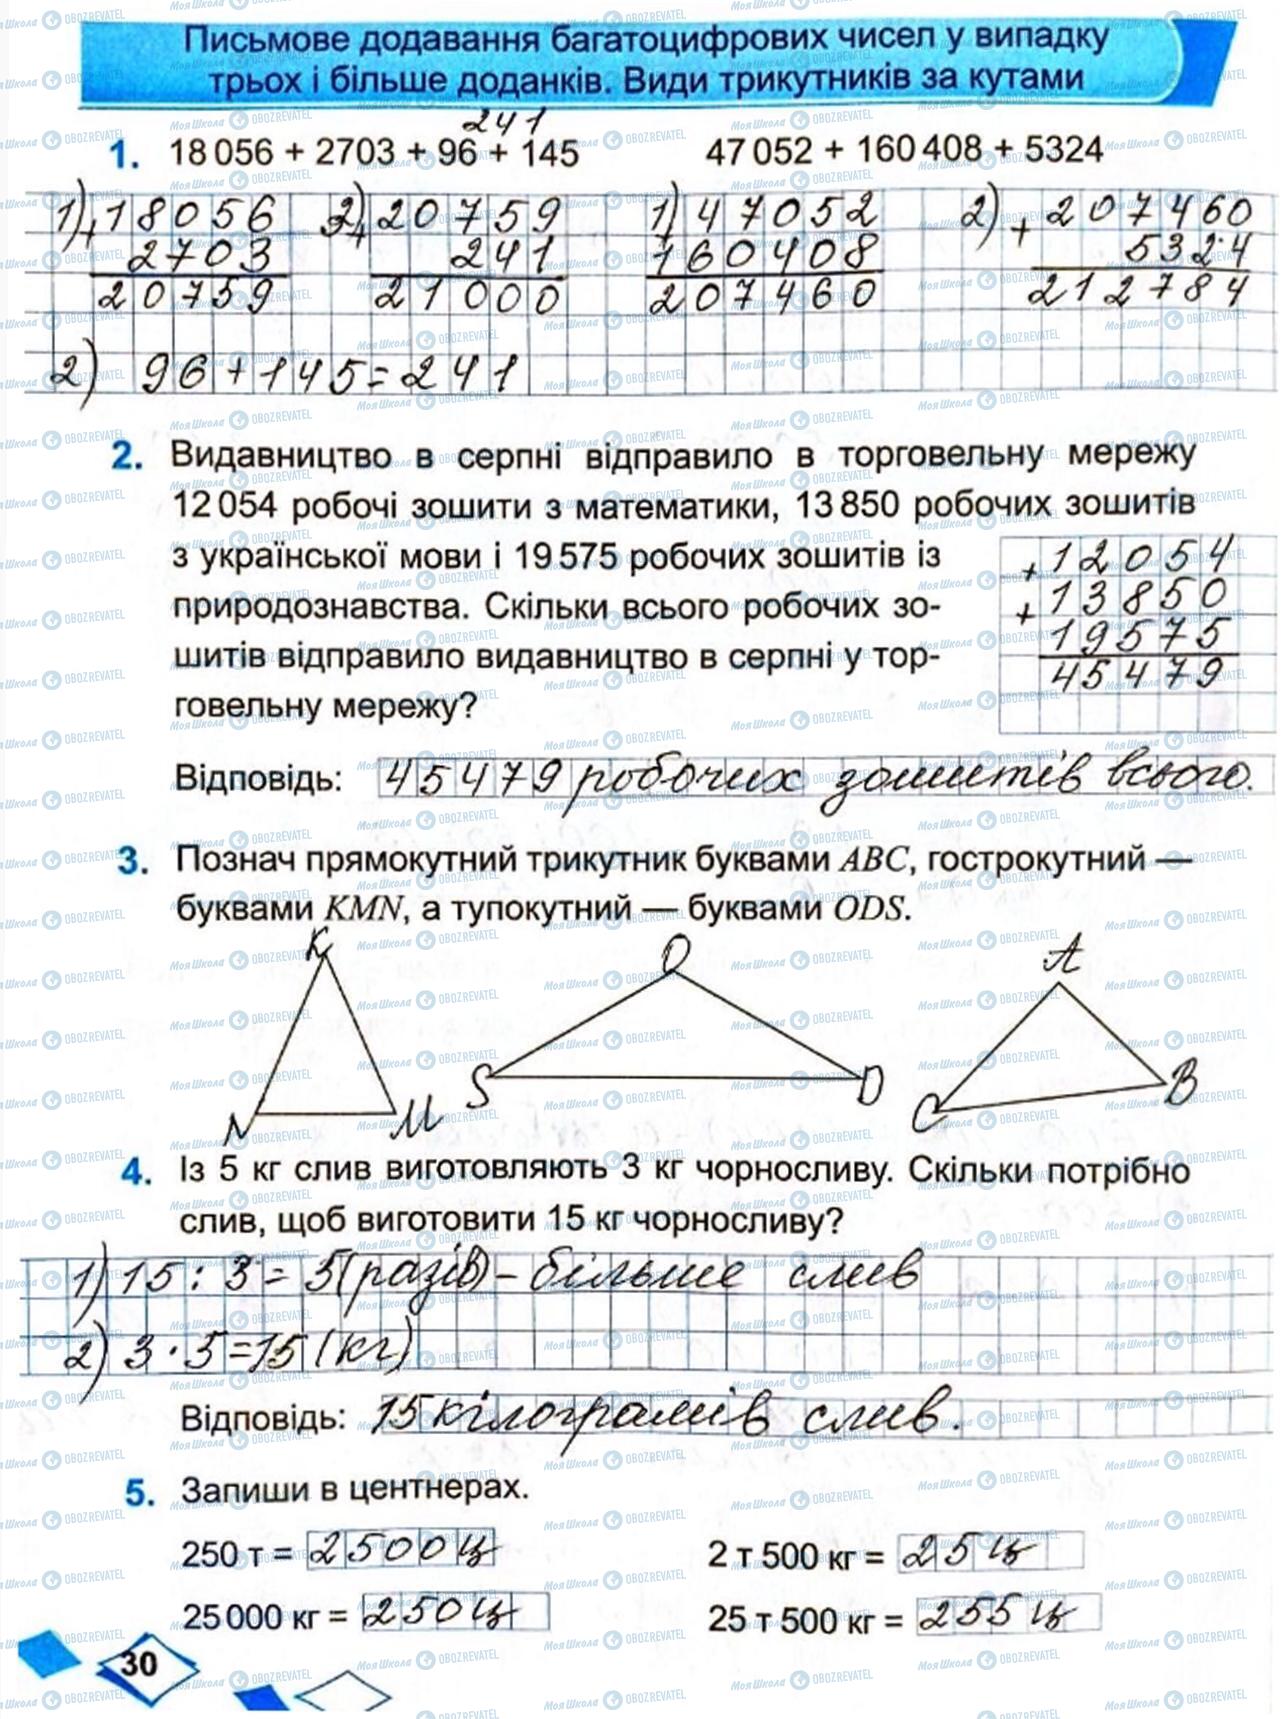 Письмове додавання багатоцифрових чисел у випадку
трьох і більше доданків. Види трикутників за кутами
241
1. 18 056 + 2703 + 96 + 145 47 052 + 160 408 + 5324
1) + 18056 3) + 20759 1) 47052 2) + 207460
2703 241 160408 5324
20759 21000 207460 212784
2) 96 + 145 = 241
2. Видавництво в серпні відправило в торговельну мережу
12 054 робочі зошити з математики, 13 850 робочих зошитів
з української мови і 19 575 робочих зошитів із
природознавства. Скільки всього робочих зо-
шитів відправило видавництво в серпні у тор-
говельну мережу?
+ 12054
+ 13850
19575
45479
Відповідь: 45479 робочих зошитів всього.
3. Познач прямокутний трикутник буквами ABC, гострокутний —
буквами KMN, а тупокутний — буквами ODS.
K O A
N M S D C B
4. Із 5 кг слив виготовляють 3 кг чорносливу. Скільки потрібно
слив, щоб виготовити 15 кг чорносливу?
1) 15 : 3 = 5 (разів) - більше слив
2) 3 · 5 = 15 (кг)
Відповідь: 15 кілограмів слив.
5. Запиши в центнерах.
250 т = 2500 ц 2 т 500 кг = 25 ц
25 000 кг = 250 ц 25 т 500 кг = 255 ц
30
МояШкола OBOZREVATEL